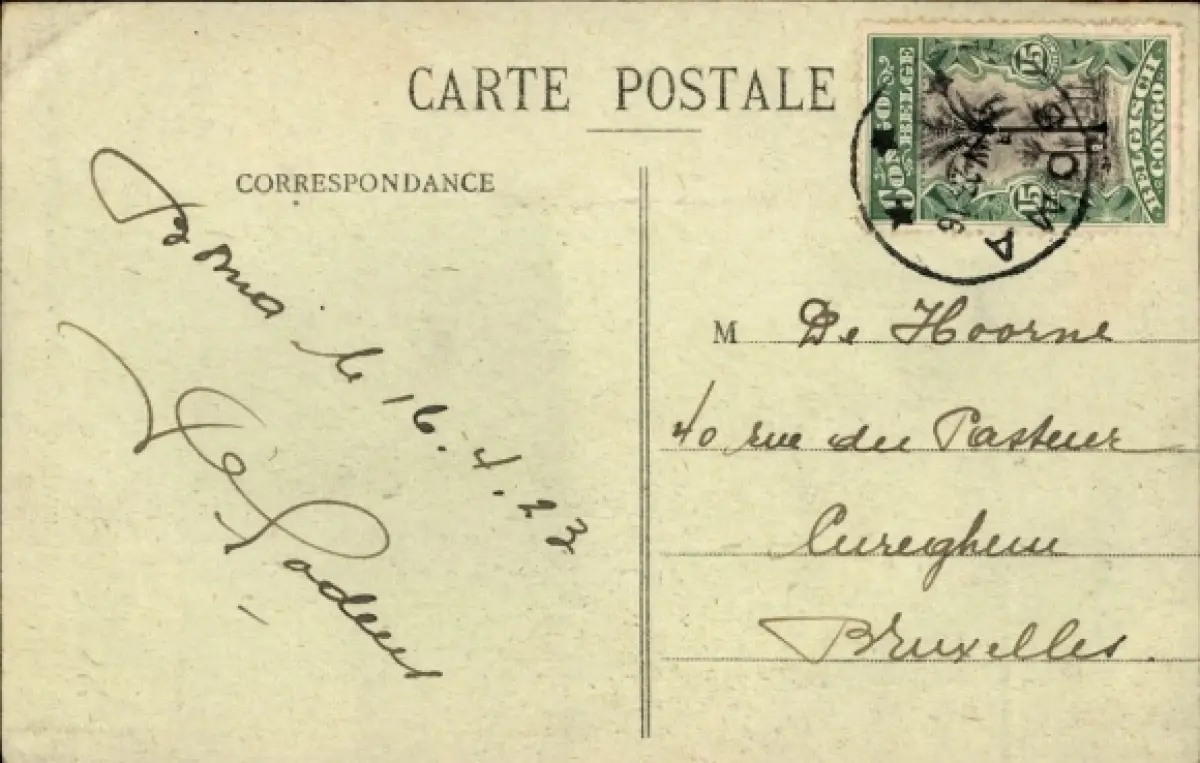 CARTE POSTALE
CONGO BELGE
15
15
BELGISCH
CONGO
BOMA
CORRESPONDANCE
Boma le 16.4.23
M De Hoorne
40 rue du Pasteur
Cureghem
Bruxelles.